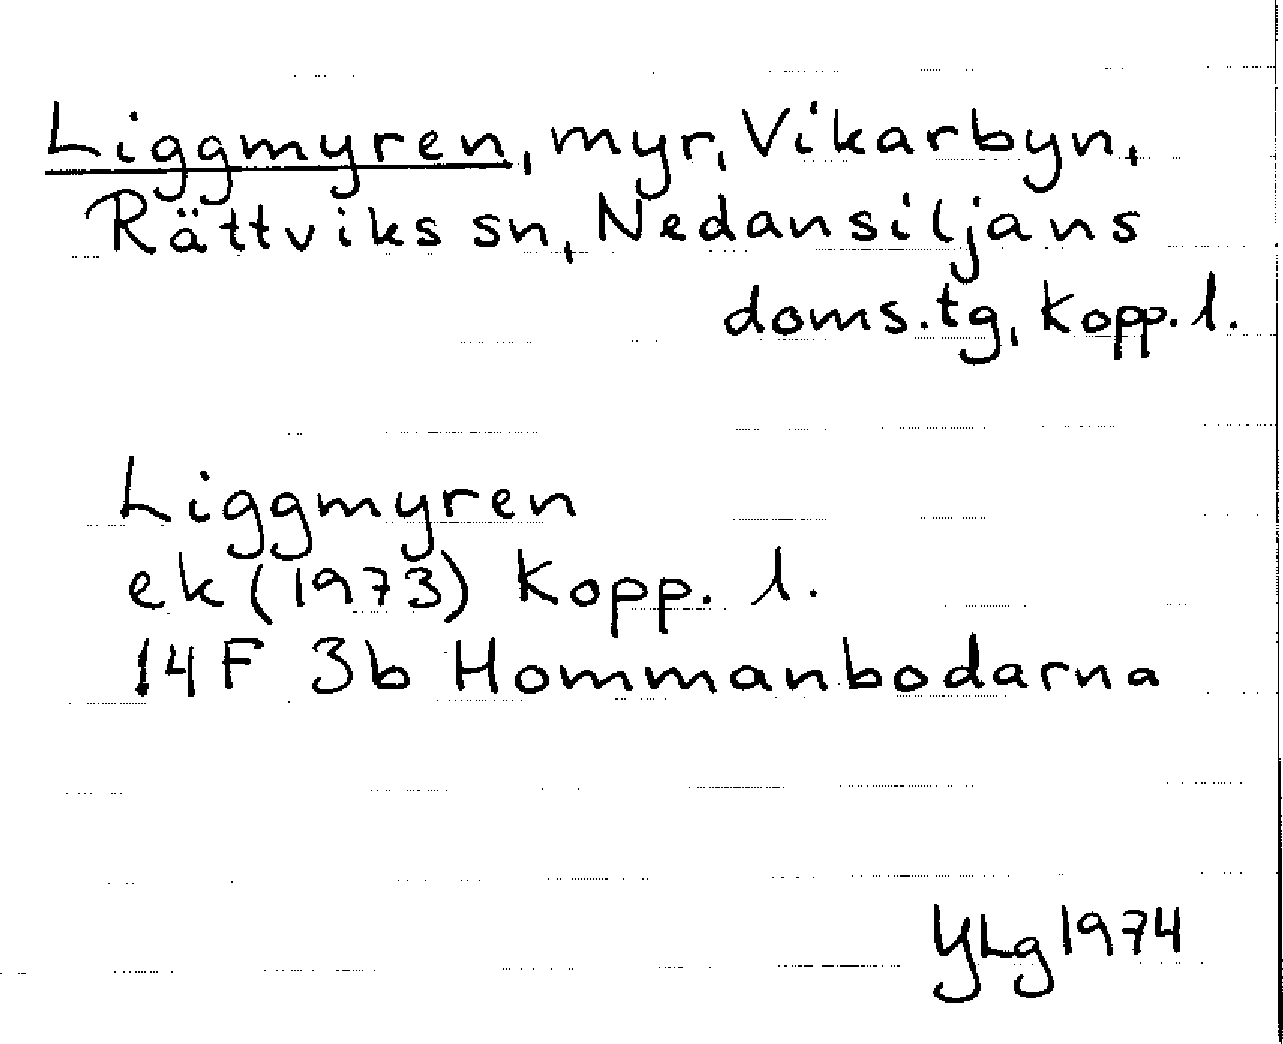 Liggmyren, myr, Vikarbyn,
Rättviks sn, Nedansiljans
doms.tg, Kopp. l.
Liggmyren
ek (1973) Kopp. l.
14F 3b Hommanbodarna
YLg 1974